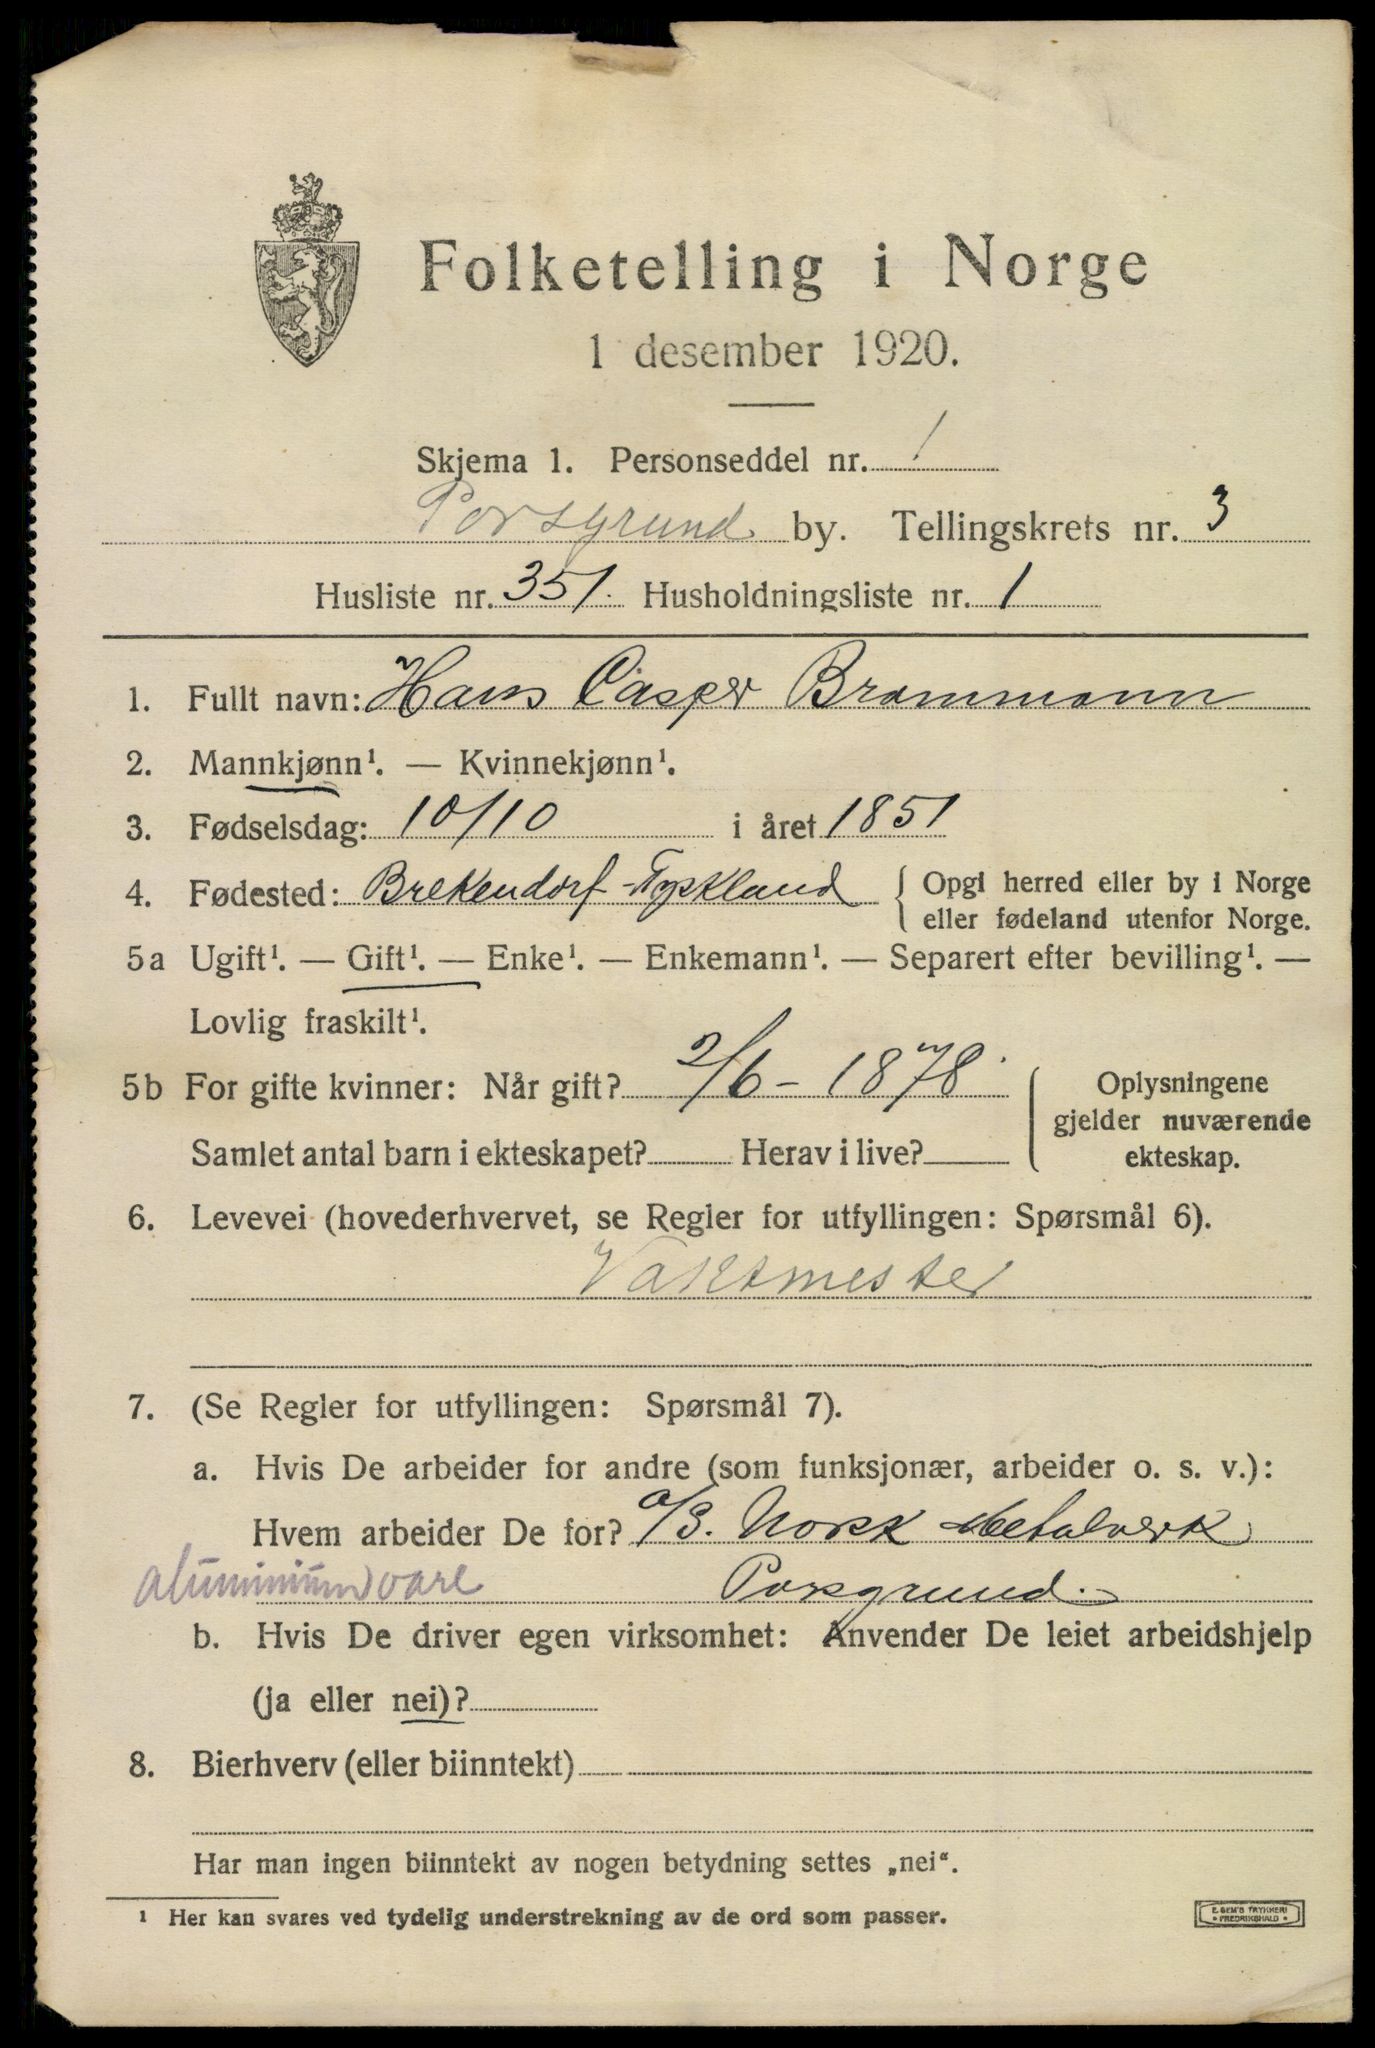 Folketelling i Norge
1 desember 1920.
Skjema 1. Personseddel nr. 1
Porsgrund by. Tellingskrets nr. 3
Husliste nr. 351. Husholdningsliste nr. 1
1. Fullt navn: Hans Casper Brammann
2. Mannkjønn¹. — Kvinnekjønn¹.
3. Fødselsdag: 10/10 i året 1851
4. Fødested: Brekendorf - Tyskland { Opgi herred eller by i Norge
eller fødeland utenfor Norge.
5a Ugift¹. — Gift¹. — Enke¹. — Enkemann¹. — Separert efter bevilling¹. —
Lovlig fraskilt¹.
5b For gifte kvinner: Når gift? 2/6 - 1878.
Samlet antal barn i ekteskapet? Herav i live?
Oplysningene
gjelder nuværende
ekteskap.
6. Levevei (hovederhvervet, se Regler for utfyllingen: Spørsmål 6).
Vaktmester
7. (Se Regler for utfyllingen: Spørsmål 7).
a. Hvis De arbeider for andre (som funksjonær, arbeider o. s. v.):
Hvem arbeider De for? a/S. Norsk Metalverk
aluminiumvare Porsgrund.
b. Hvis De driver egen virksomhet: Anvender De leiet arbeidshjelp
(ja eller nei)?
8. Bierhverv (eller biinntekt)
Har man ingen biinntekt av nogen betydning settes „nei“.
¹ Her kan svares ved tydelig understrekning av de ord som passer.
E. SEM'S TRYKKERI
• FREDRIKSHALD •